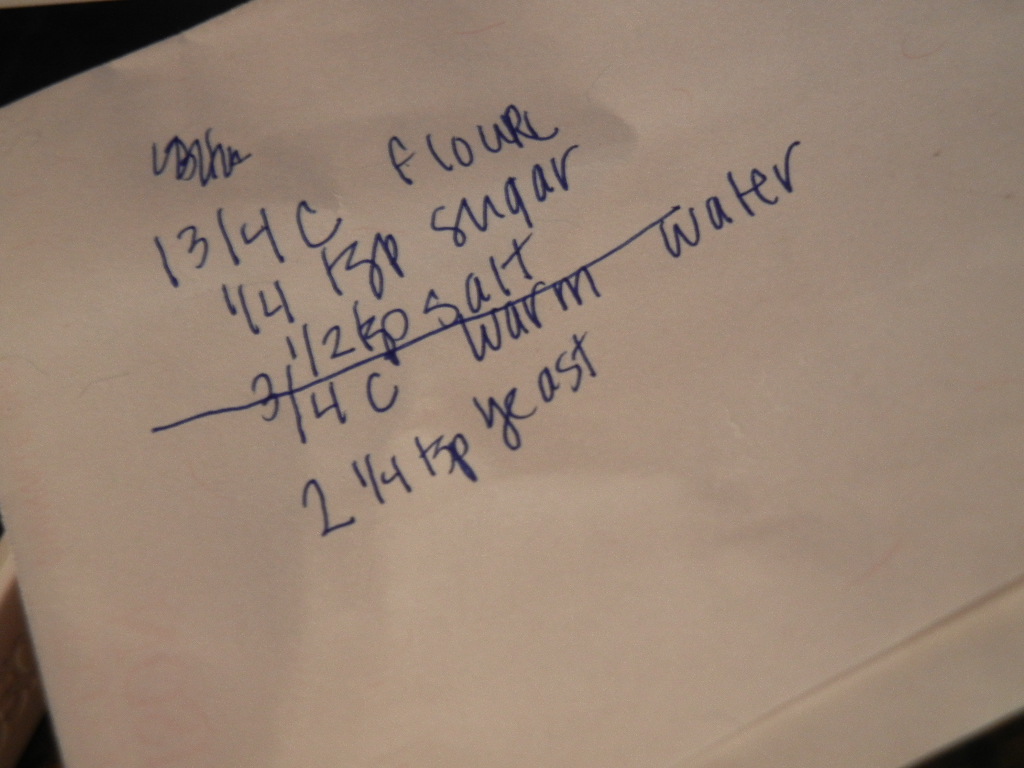 flour
1 3/4 C
1/4 tsp sugar
1/2 tsp salt
3/4 C warm water
2 1/4 tsp yeast